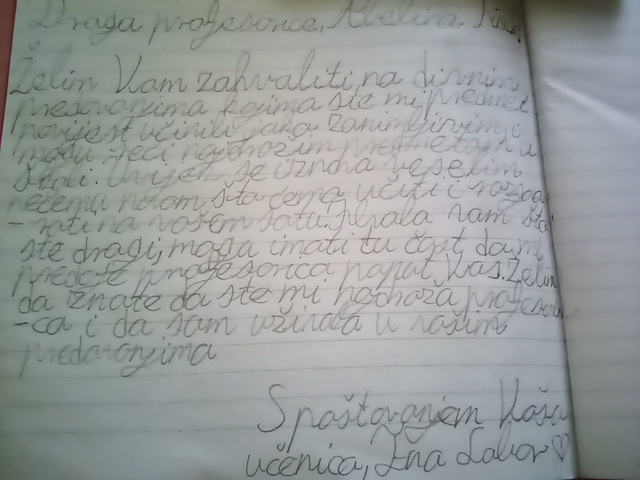 Draga profesorice, Abelina
Želim Vam zahvaliti na divnim
predavanjima kojima ste mi predmet
povijest učinili jako zanimljivim i
mogu reći najdražim predmetom u
školi. Uvijek se iznova veselim
nečemu novom što ćemo učiti i razgova
- rati na vašem satu. Hvala vam što
ste dragi, mogu imati tu čast da mi
predaje profesorica poput Vas. Želim
da znate da ste mi najdraža profesori
-ca i da sam uživala u vašim
predavanjima
S poštovanjem Vaša
učenica,